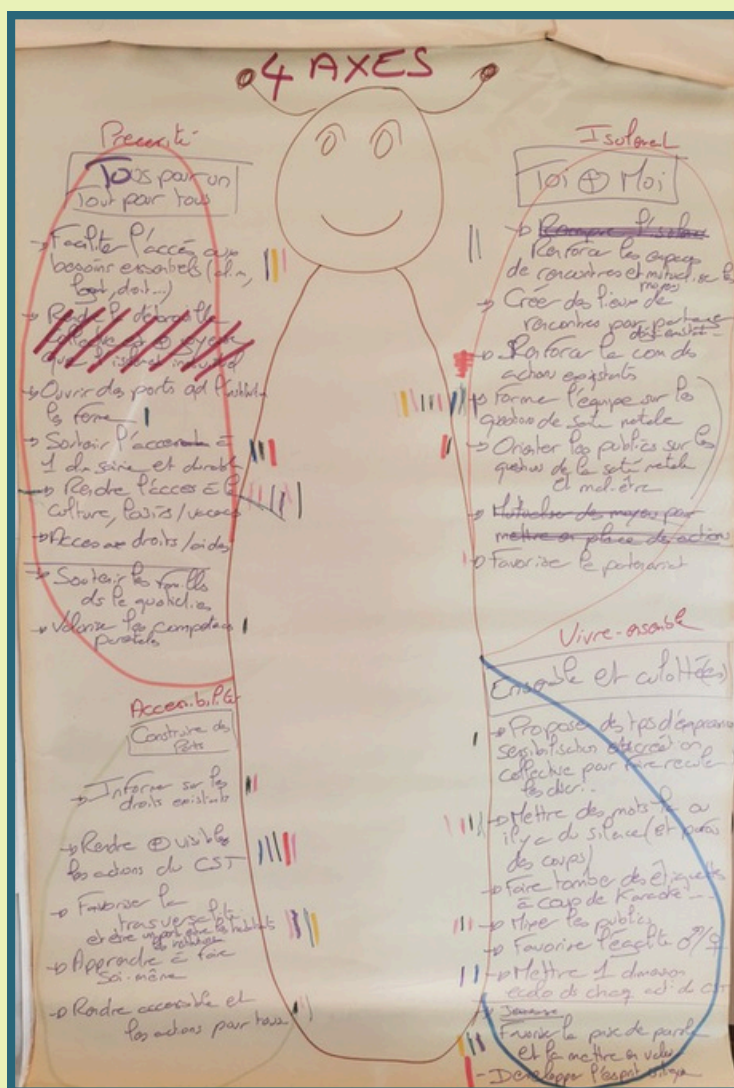 4 AXES
Précarité
Tous pour un
Tout pour tous
→ Faciliter l'accès aux
besoins essentiels (alim,
logt, droit...)
→ Rendre la débrouille
collective et ⊕ joyeuse
que l'isolement individuel
→ Ouvrir des ports
les
→ Soutenir l'accès à
1 alim saine et durable
→ Rendre l'accès à la
culture, loisirs/vacances
→ Accès aux droits/aides
→ Soutenir les familles
ds le quotidien
→ Valoriser les compétences
parentales
Accessibilité
Construire des
Ponts
→ Informer sur les
droits existants
→ Rendre ⊕ visibles
les actions du CST
→ Favoriser la
transversalité
et être un pont entre les habitants
et
→ Apprendre à faire
soi-même
→ Rendre accessible et
les actions pour tous
Isolement
Toi ⊕ Moi
→ Rompre l'isolement
Renforcer les espaces
de rencontres et mutualiser les
moyens
→ Créer des lieux de
rencontres pour partager
→ Renforcer la com des
actions existants
→ Former l'équipe sur les
question de santé mentale
→ Orienter les publics sur les
questions de la santé mentale
et mal-être
→ Mutualiser des moyens pour
mettre en place des actions
→ Favoriser le partenariat
Vivre-ensemble
Ensemble et culotté(es)
→ Proposer des tps d'expression
sensibilisation et création
collective pour faire reculer
les discri..
→ Mettre des mots là où
il y a du silence (et parfois
des coups)
→ Faire tomber des étiquettes
à coup de Karaoké...
→ Mixer les publics
→ Favoriser l'égalité ♂/♀
→ Mettre 1 dimension
écolo ds chaq acti du CST
→ Jeunesse
Favoriser la prise de parole
et la mettre en valeur
→ Développer l'esprit critique